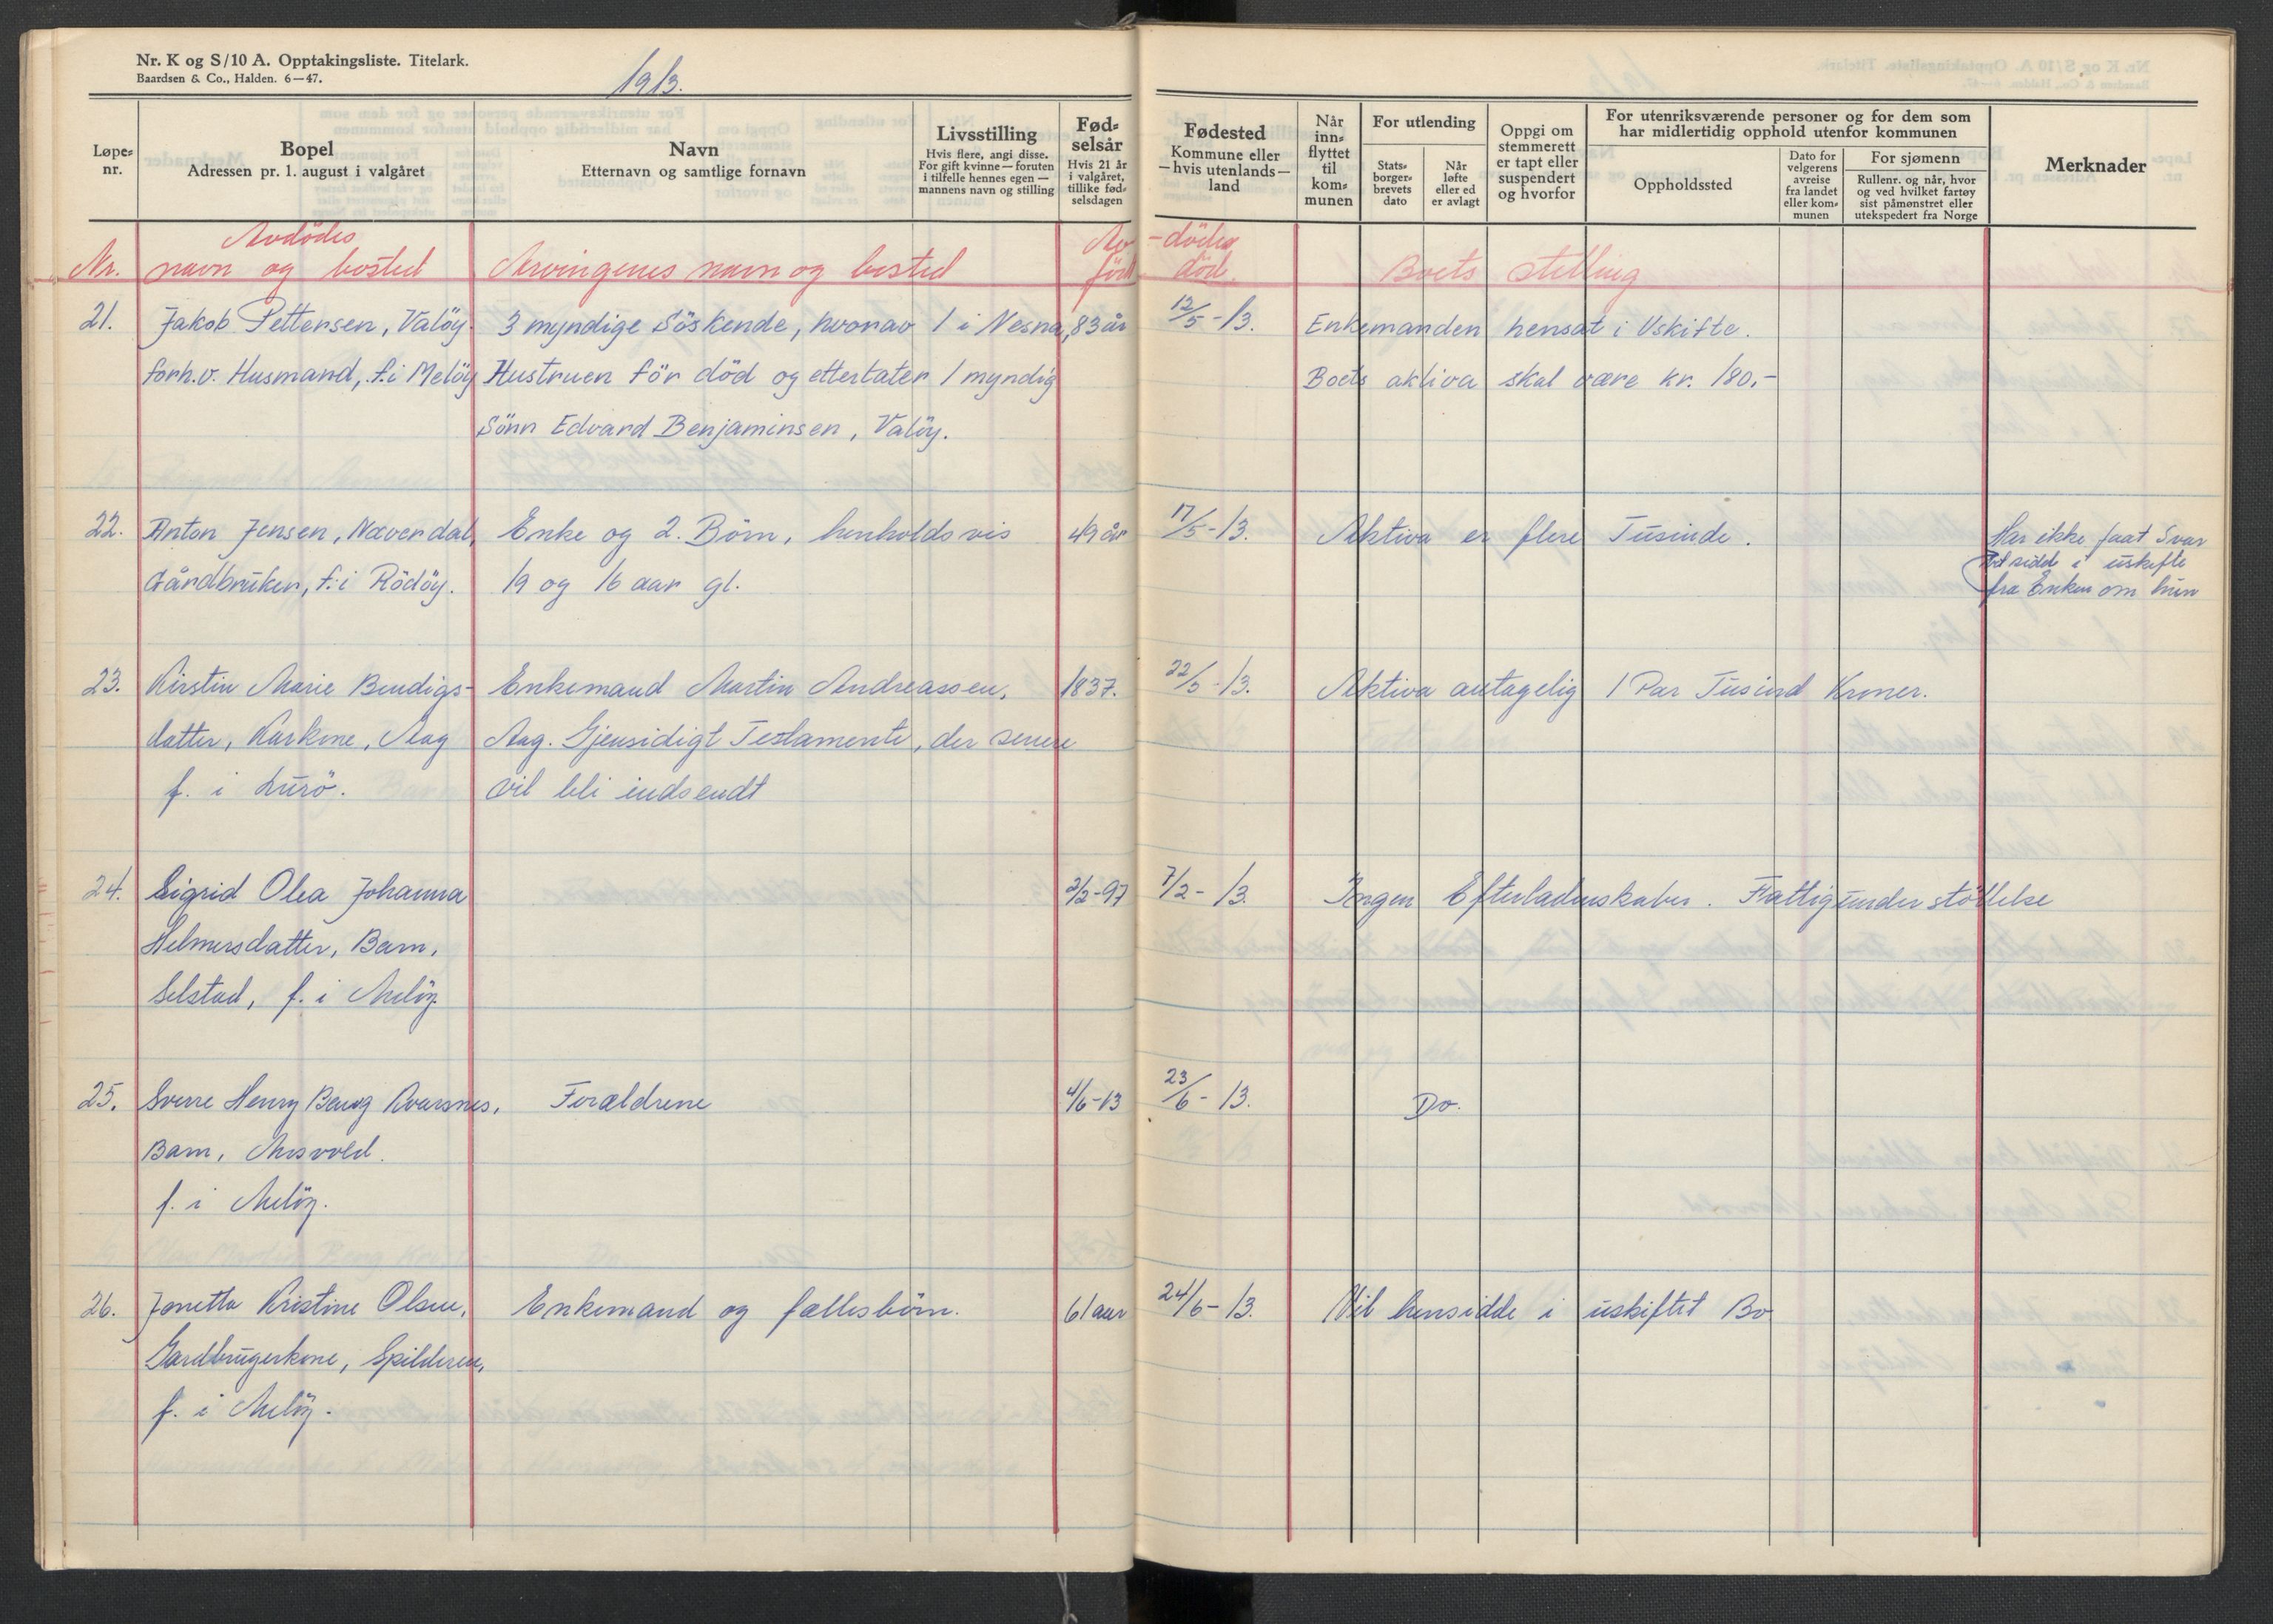 Nr. K og S/10 A. Opptakingsliste. Titelark.
Baardsen & Co., Halden. 6—47.
1913.
Løpe-nr.
Bopel
Adressen pr. 1. august i valgåret
Navn
Etternavn og samtlige fornavn
Livsstilling
Hvis flere, angi disse.
For gift kvinne — foruten
i tilfelle hennes egen —
mannens navn og stilling
Fød-
selsår
Hvis 21 år
i valgåret,
tillike fød-
selsdagen
Fødested
Kommune eller
— hvis utenlands —
land
Når
inn-
flyttet
til
kom-
munen
For utlending
Stats-
borger-
brevets
dato
Når
løfte
eller ed
er avlagt
Oppgi om
stemmerett
er tapt eller
suspendert
og hvorfor
For utenriksværende personer og for dem som
har midlertidig opphold utenfor kommunen
Oppholdssted
Dato for
velgerens
avreise
fra landet
eller kom-
munen
For sjømenn
Rullenr. og når, hvor
og ved hvilket fartøy
sist påmønstret eller
utekspedert fra Norge
Merknader
Avdödes Av-dödes
Nr. navn og bosted Arvingenes navn og bosted född död. Boets stilling
21. Jakob Pettersen, Valöy. 3 myndige Söskende, hvorav 1 i Nesna, 83 år 12/5-13. Enkemanden hensat i Uskifte.
forh.v. Husmand, f. i Melöy Hustruen för död og etterlater 1 myndig Boets aktiva skal være kr. 180,-
Sönn Edvard Benjaminsen, Valöy.
22. Anton Jensen, Næverdal, Enke og 2. Börn, henholdsvis 49 år 17/5-13. Aktiva er flere Tusinde. Har ikke faat Svar
Gårdbruker, f. i Rödöy. 19 og 16 aar gl. sidde i uskifte
fra Enken om hun
23. Kirstin Marie Bendigs- Enkemand Martin Andreassen, 1837. 22/5-13. Aktiva antagelig 1 Par Tusind Kroner.
datter, Kaarkone, Aag Aag. Gjensidigt Testamente, der senere
f. i Lurö. vil bli indsendt
24. Sigrid Olea Johanna 2/2-97 7/2-13. Ingen Efterladenskaber. Fattigunderstöttelse
Helmersdatter, Barn,
Selstad, f. i Melöy
25. Sverre Henry Benog Kvarsnes, Forældrene 4/6-13 23/6-13. Do.
Barn, Mosvold.
f. i Melöy.
26. Jonetta Kristine Olsen, Enkemand og fællesbörn. 61 aar 24/6-13. Vil hensidde i uskiftet Bo
Gardbrugerkone, Spilderen,
f. i Melöy.